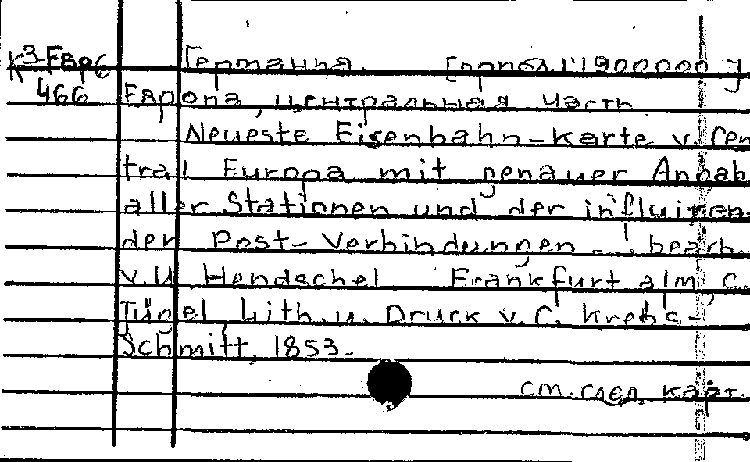 К3-Евр6 Германия. [прибл. 1:1900000]
466 Европа, центральная часть
Neueste Eisenbahn-Karte v. Cen
tral Europa mit genauer Angab.
aller Stationen und der influiren-
den Post-Verbindungen... bearb.
v. U. Hendschel. Frankfurt a/m, C.
Jügel, Lith. u. Druck v. C. Krebs-
Schmitt, 1853.
см. след. карт.